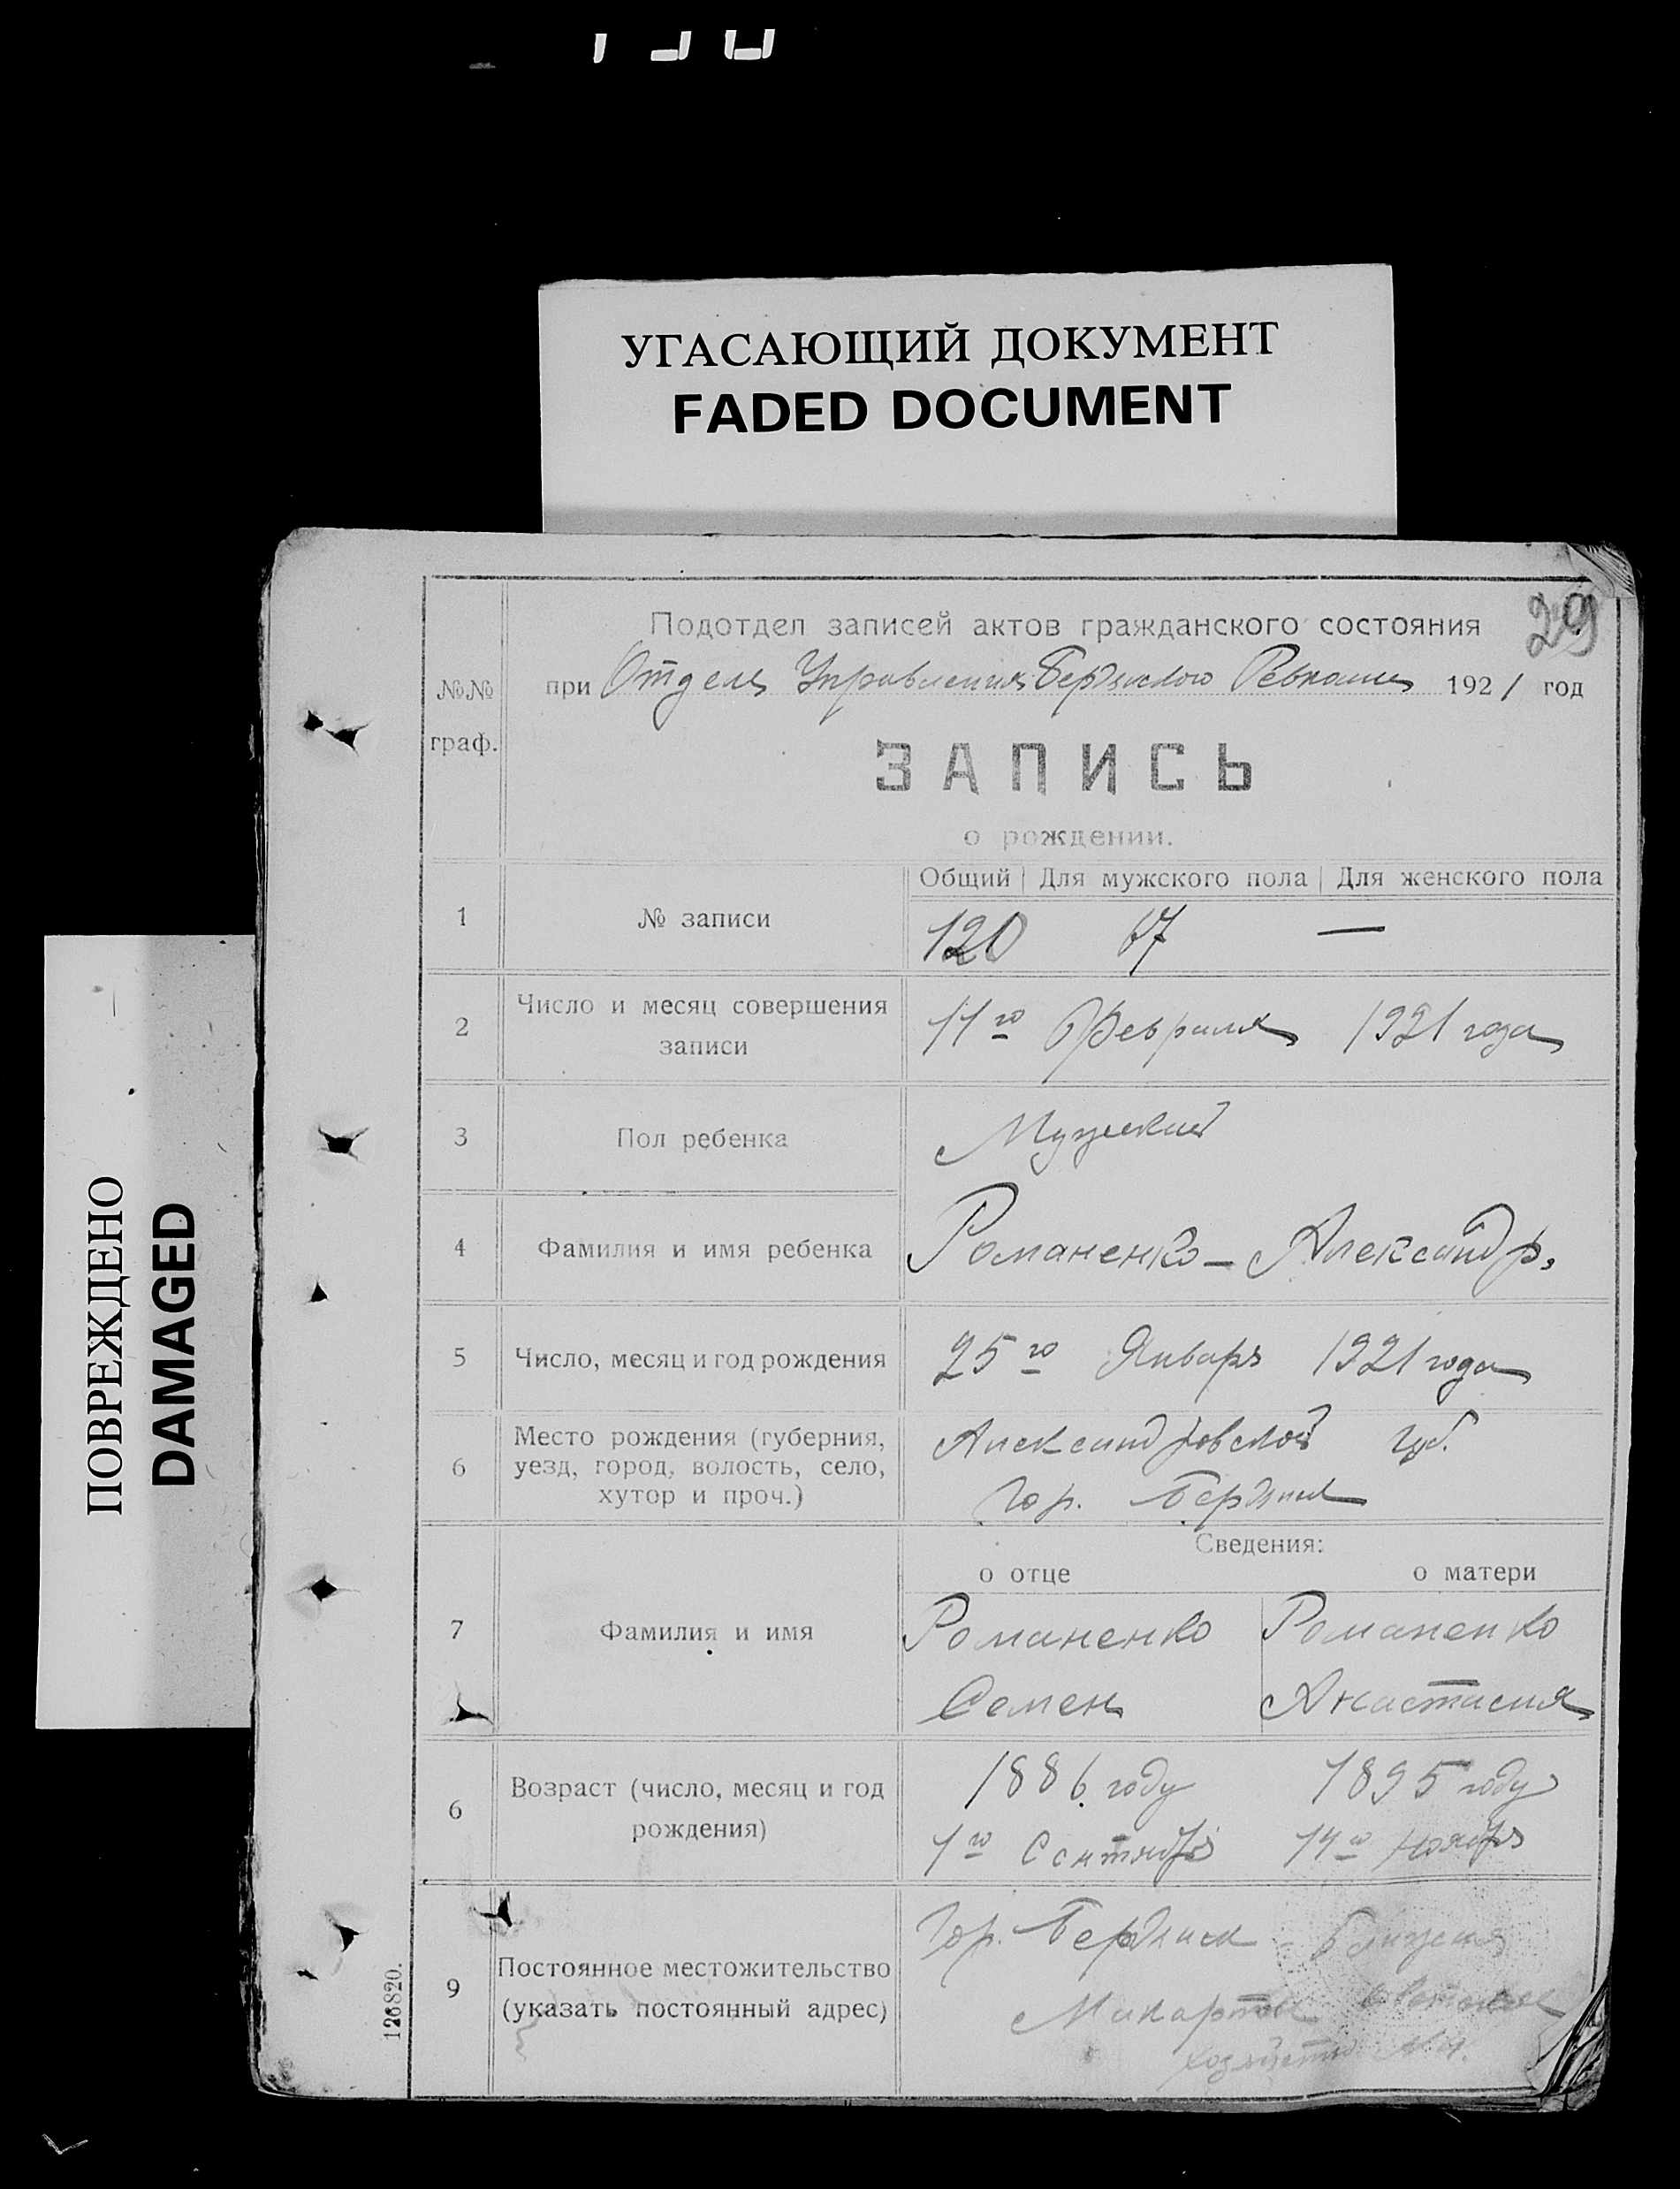 УГАСАЮЩИЙ ДОКУМЕНТ
FADED DOCUMENT
ПОВРЕЖДЕНО
DAMAGED
29
Подотдел записей актов гражданского состояния
№№ граф.
при Отделе Управления Бердянского Ревкома 1921 год
ЗАПИСЬ
о рождении.
Общий Для мужского пола Для женского пола
1 № записи 120 67 —
2 Число и месяц совершения записи 11го Февраля 1921 года
3 Пол ребенка Мужской
4 Фамилия и имя ребенка Романенко – Александр.
5 Число, месяц и год рождения 25го Январь 1921 года
6 Место рождения (губерния, Александровской Губ.
уезд, город, волость, село,
хутор и проч.) Гор. Бердянск
Сведения:
о отце о матери
7 Фамилия и имя Романенко Романенко
Семен Анастасия
6 Возраст (число, месяц и год 1886 году 1895 году
рождения) 1го Сентября 14го Ноября
9 Постоянное местожительство Гор. Бердянск
(указать постоянный адрес)
126820.